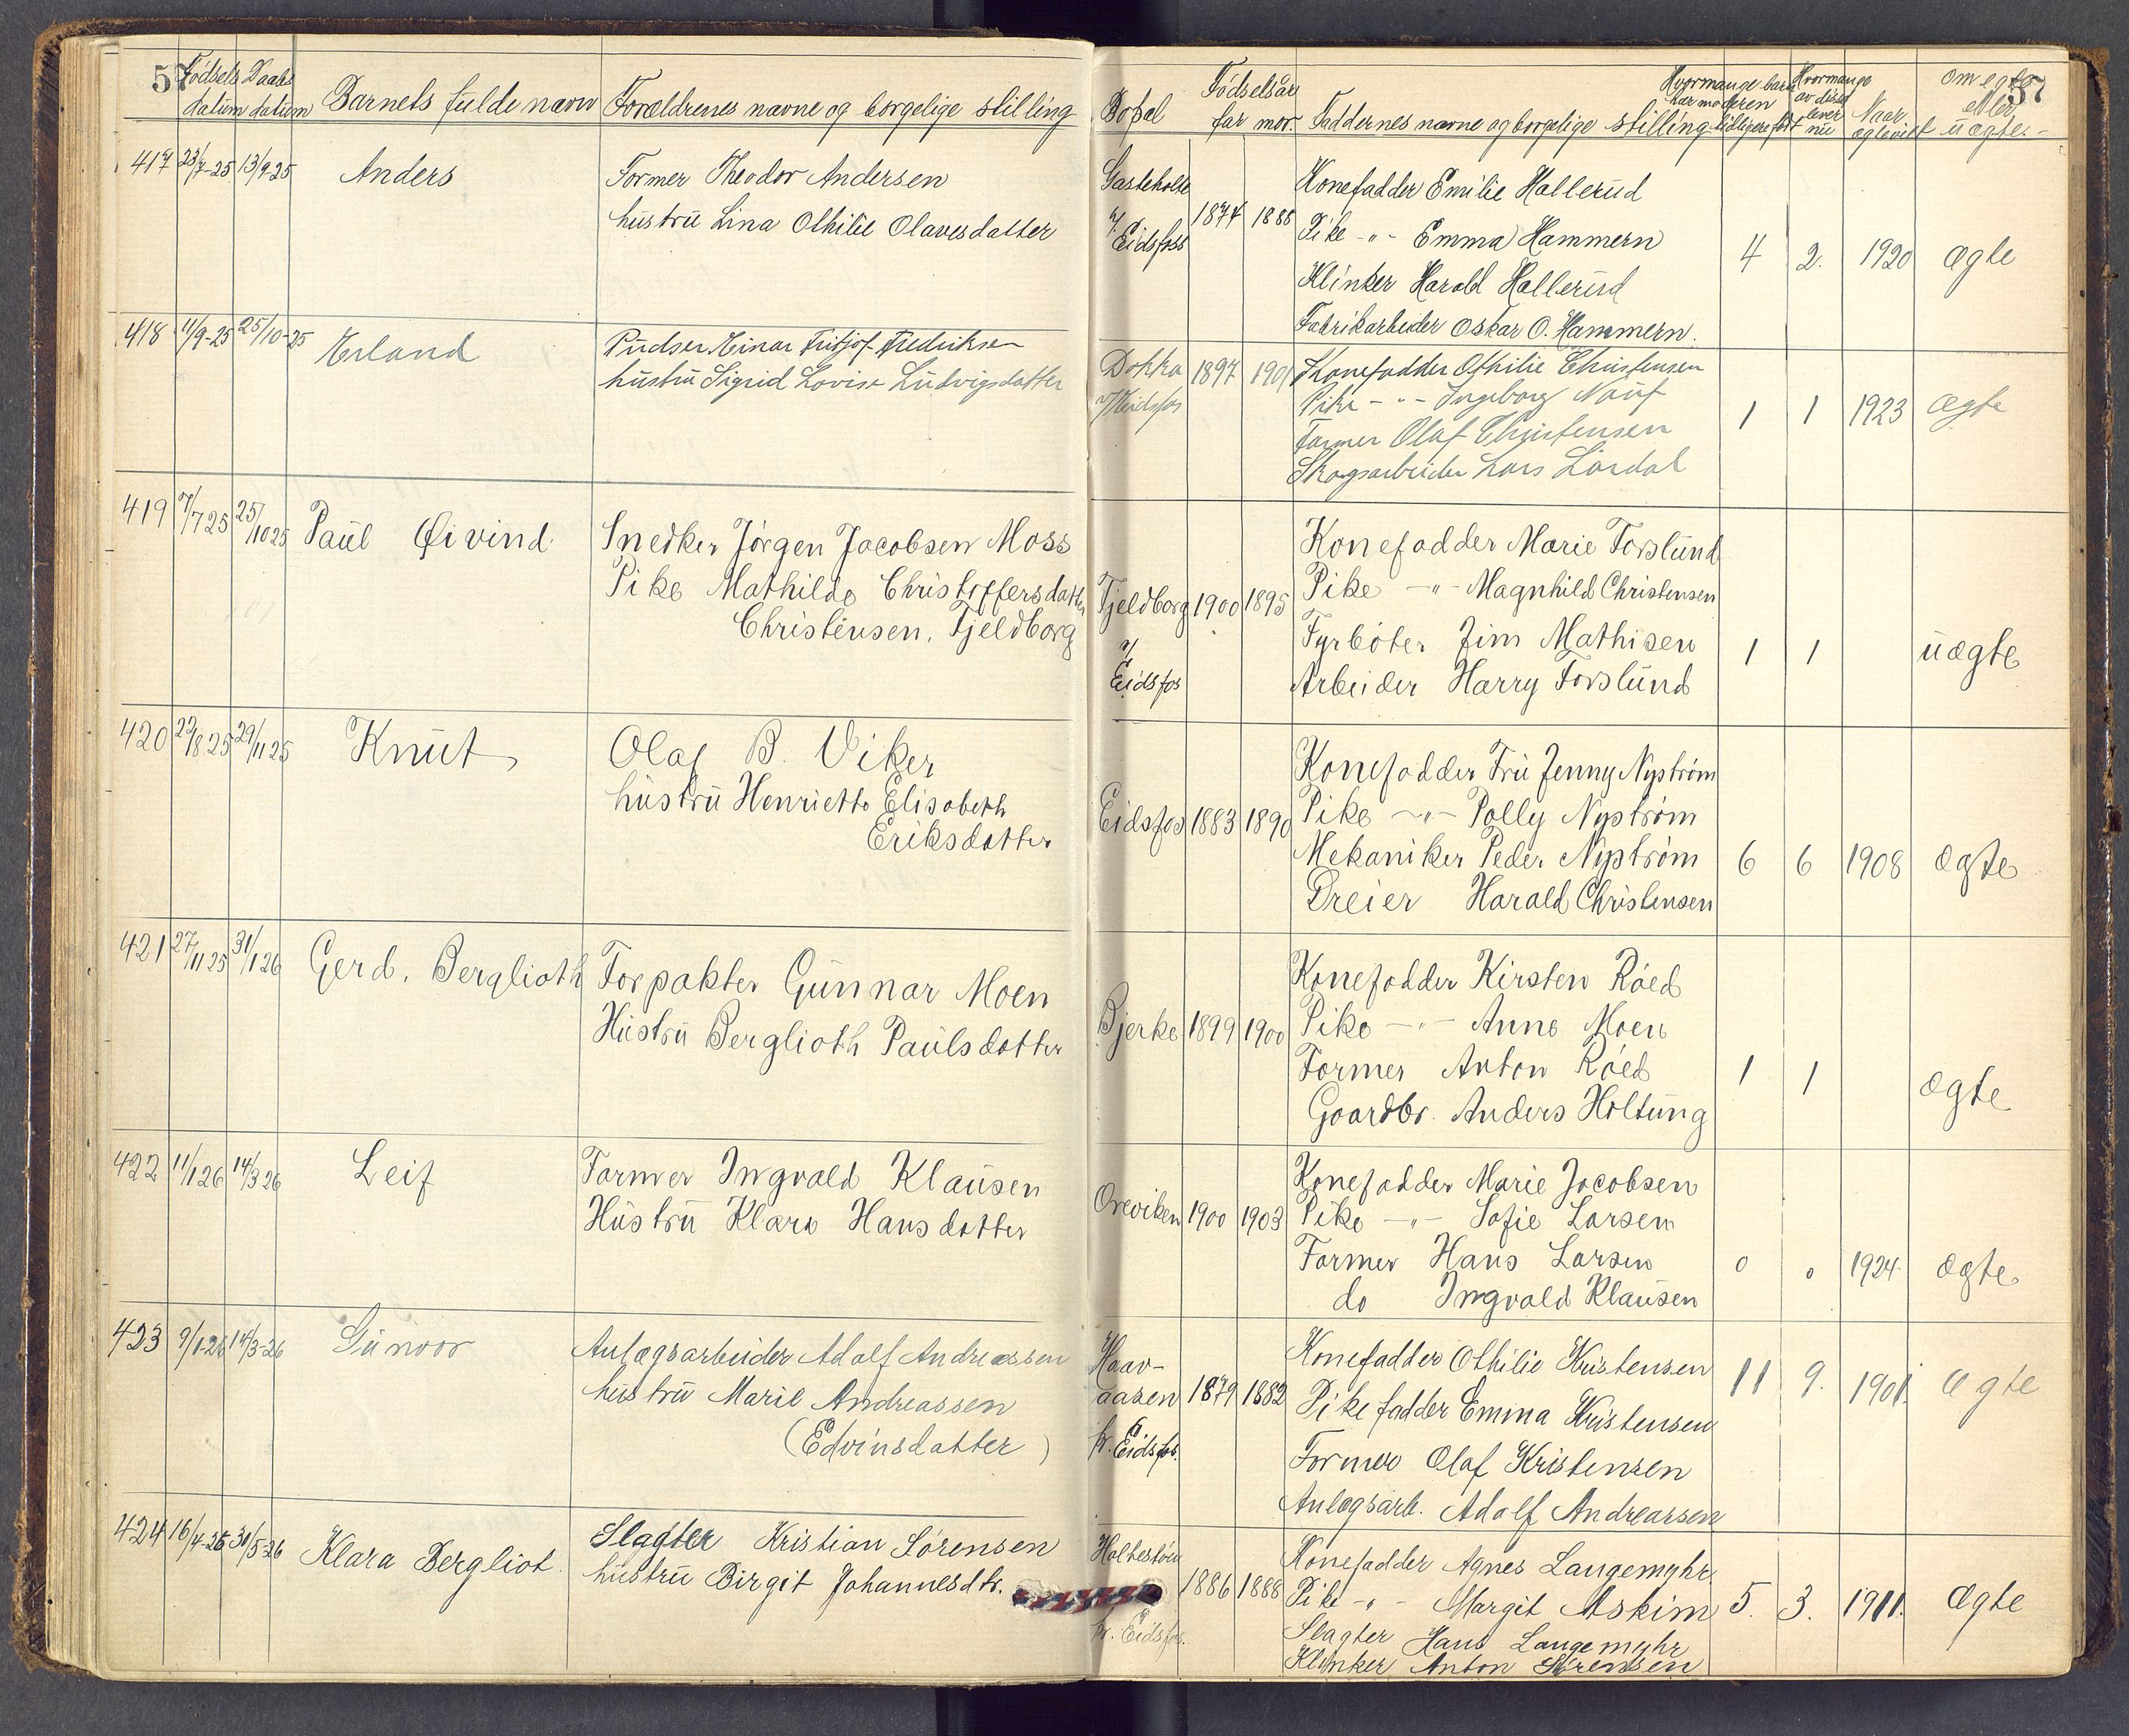 57
Fødsels datum
Daabs datum
Barnets fulde navn
Forældrenes navne og borgelige stilling
Bopæl
Fødselsår
far mor.
Faddernes navne og borgelige stilling
Hvormange barn har moderen tidligere født
Hvormange av disse lever nu
Naar egteviet
om egte eller uægte.-
57
417 23/7-25 13/9-25 Anders
Former Theodor Andersen
hustru Lina Othilie Olavesdatter
Gasteholt
v/
Eidsfoss
1874 1888
Konefadder Emilie Hallerud
Pike -"- Emma Hammern
Klinker Harald Hallerud
Fabrikarbeider Oskar O. Hammern.
4 2. 1920 ægte
418 11/9-25 25/10-25 Erland
Pudser Einar Fritjof Fredriksen
hustru Sigrid Lovise Ludvigsdatter
Dokka
v/Eidsfos
1897 1901
Konefadder Othilie Christensen
Pike -"- Ingeborg
Former Olaf Christensen
Skogsarbeider Lars Lørdal
1 1 1923 ægte
419 7/7 25 25/10 25 Paul Øivind
Snedker Jørgen Jacobsen Moss
Pike Mathilde Christoffersdatter
Christensen, Fjeldborg
Fjeldborg
v/
Eidsfos
1900 1895
Konefadder Marie Forslund
Pike -"- Magnhild Christensen
Fyrbøter Jim Mathisen
Arbeider Harry Forslund
1 1 uægte
420 22/8 25 29/11 25 Knut
Olaf B. Viker
hustru Henriette Elisabeth
Eriksdatter
Eidsfos 1883 1890
Konefadder Fru Jenny Nyström
Pike -"- Polly Nyström
Mekaniker Peder Nyström
Dreier Harald Christensen
6 6 1908 ægte
421 27/11 25 31/1 26 Gerd. Berglioth
Forpakter Gunnar Moen
Hustru Berglioth Paulsdatter
Bjerke 1899 1900
Konefadder Kirsten Røed
Pike -"- Anne Moen
Former Anton Røed
Gaardbr. Anders Holtung
1 1 ægte
422 11/1 26 14/3 26 Leif
Former Ingvald Klausen
Hustru Klara Hansdatter
Oreviken 1900 1903
Konefadder Marie Jacobsen
Pike -"- Sofie Larsen
Former Hans Larsen
do Ingvald Klausen
0 0 1924 ægte
423 9/1-26 14/3-26 Gunvor
Anlægsarbeider Adolf Andreassen
hustru Marie Andreassen
(Edvinsdatter)
Haav-
aasen
pr. Eidsfos.
1879 1882
Konefadder Othilie Kristensen
Pikefadder Emma Kristensen
Former Olaf Kristensen
Anlægsarb. Adolf Andreassen
11 9. 1901. ægte
424 16/4-26 30/5-26 Klara Bergliot.
Slagter Kristian Sørensen
hustru Birgit Johannesdtr.
pr. Eidsfos.
1886 1888
Konefadder Agnes Langemyhr
Pike -"- Margit Askim
Slagter Hans Langemyhr
Klinker Anton Sørensen
5. 3. 1911. ægte